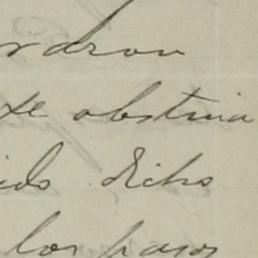 se obstina
ido dicho
los pasos